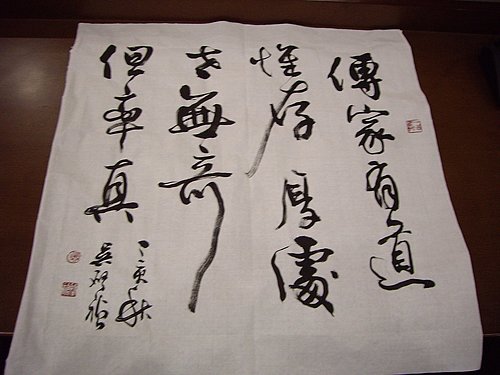 傳家有道
惟存厚處
世無奇
但率真
丁亥秋
吳